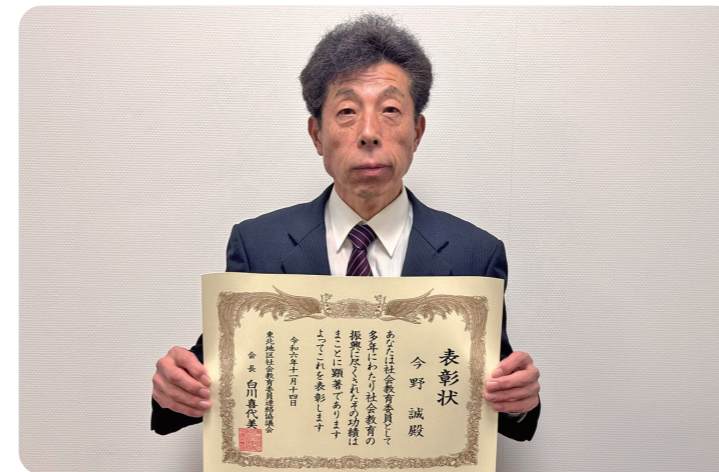 表彰状
今野 誠殿
あなたは社会教育委員として
多年にわたり社会教育の
振興に尽くされたその功績は
まことに顕著であります
よってこれを表彰します
令和六年十一月十四日
東北地区社会教育委員連絡協議会
会長 白川喜代美